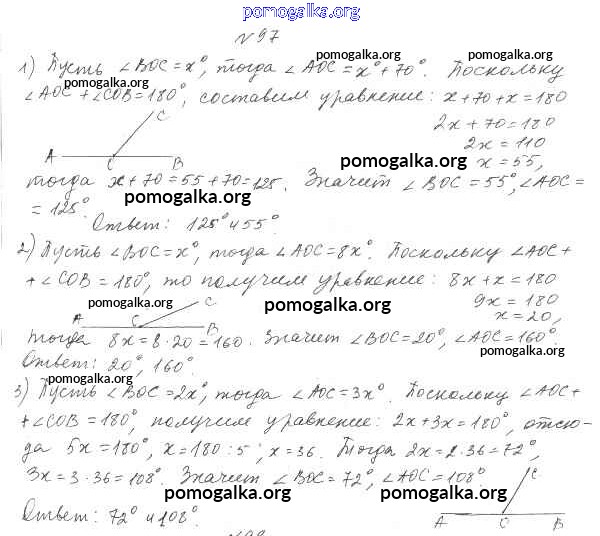 pomogalka.org
№97
pomogalka.org pomogalka.org
1) Пусть ∠BOC=x°, тогда ∠AOC=x°+70°. Поскольку
pomogalka.org
∠AOC+∠COB=180°, составим уравнение: x+70+x=180
C
2x+70=180
2x=110
A C B
pomogalka.org
x=55,
тогда x+70=55+70=125. Значит ∠BOC=55°, ∠AOC=
pomogalka.org pomogalka.org
=125°
Ответ: 125° и 55°.
pomogalka.org
2) Пусть ∠BOC=x°, тогда ∠AOC=8x°. Поскольку ∠AOC+
+∠COB=180°, то получим уравнение: 8x+x=180
pomogalka.org C pomogalka.org
9x=180
A C B
x=20,
тогда 8x=8·20=160. Значит ∠BOC=20°, ∠AOC=160°
pomogalka.org
Ответ: 20°, 160°.
pomogalka.org
3) Пусть ∠BOC=2x°, тогда ∠AOC=3x°. Поскольку ∠AOC+
+∠COB=180°, получим уравнение: 2x+3x=180°, отсю-
pomogalka.org pomogalka.org
да 5x=180°, x=180:5; x=36. Тогда 2x=2·36=72°,
3x=3·36=108°. Значит ∠BOC=72°, ∠AOC=108°
C
pomogalka.org pomogalka.org
Ответ: 72° и 108°.
A C B